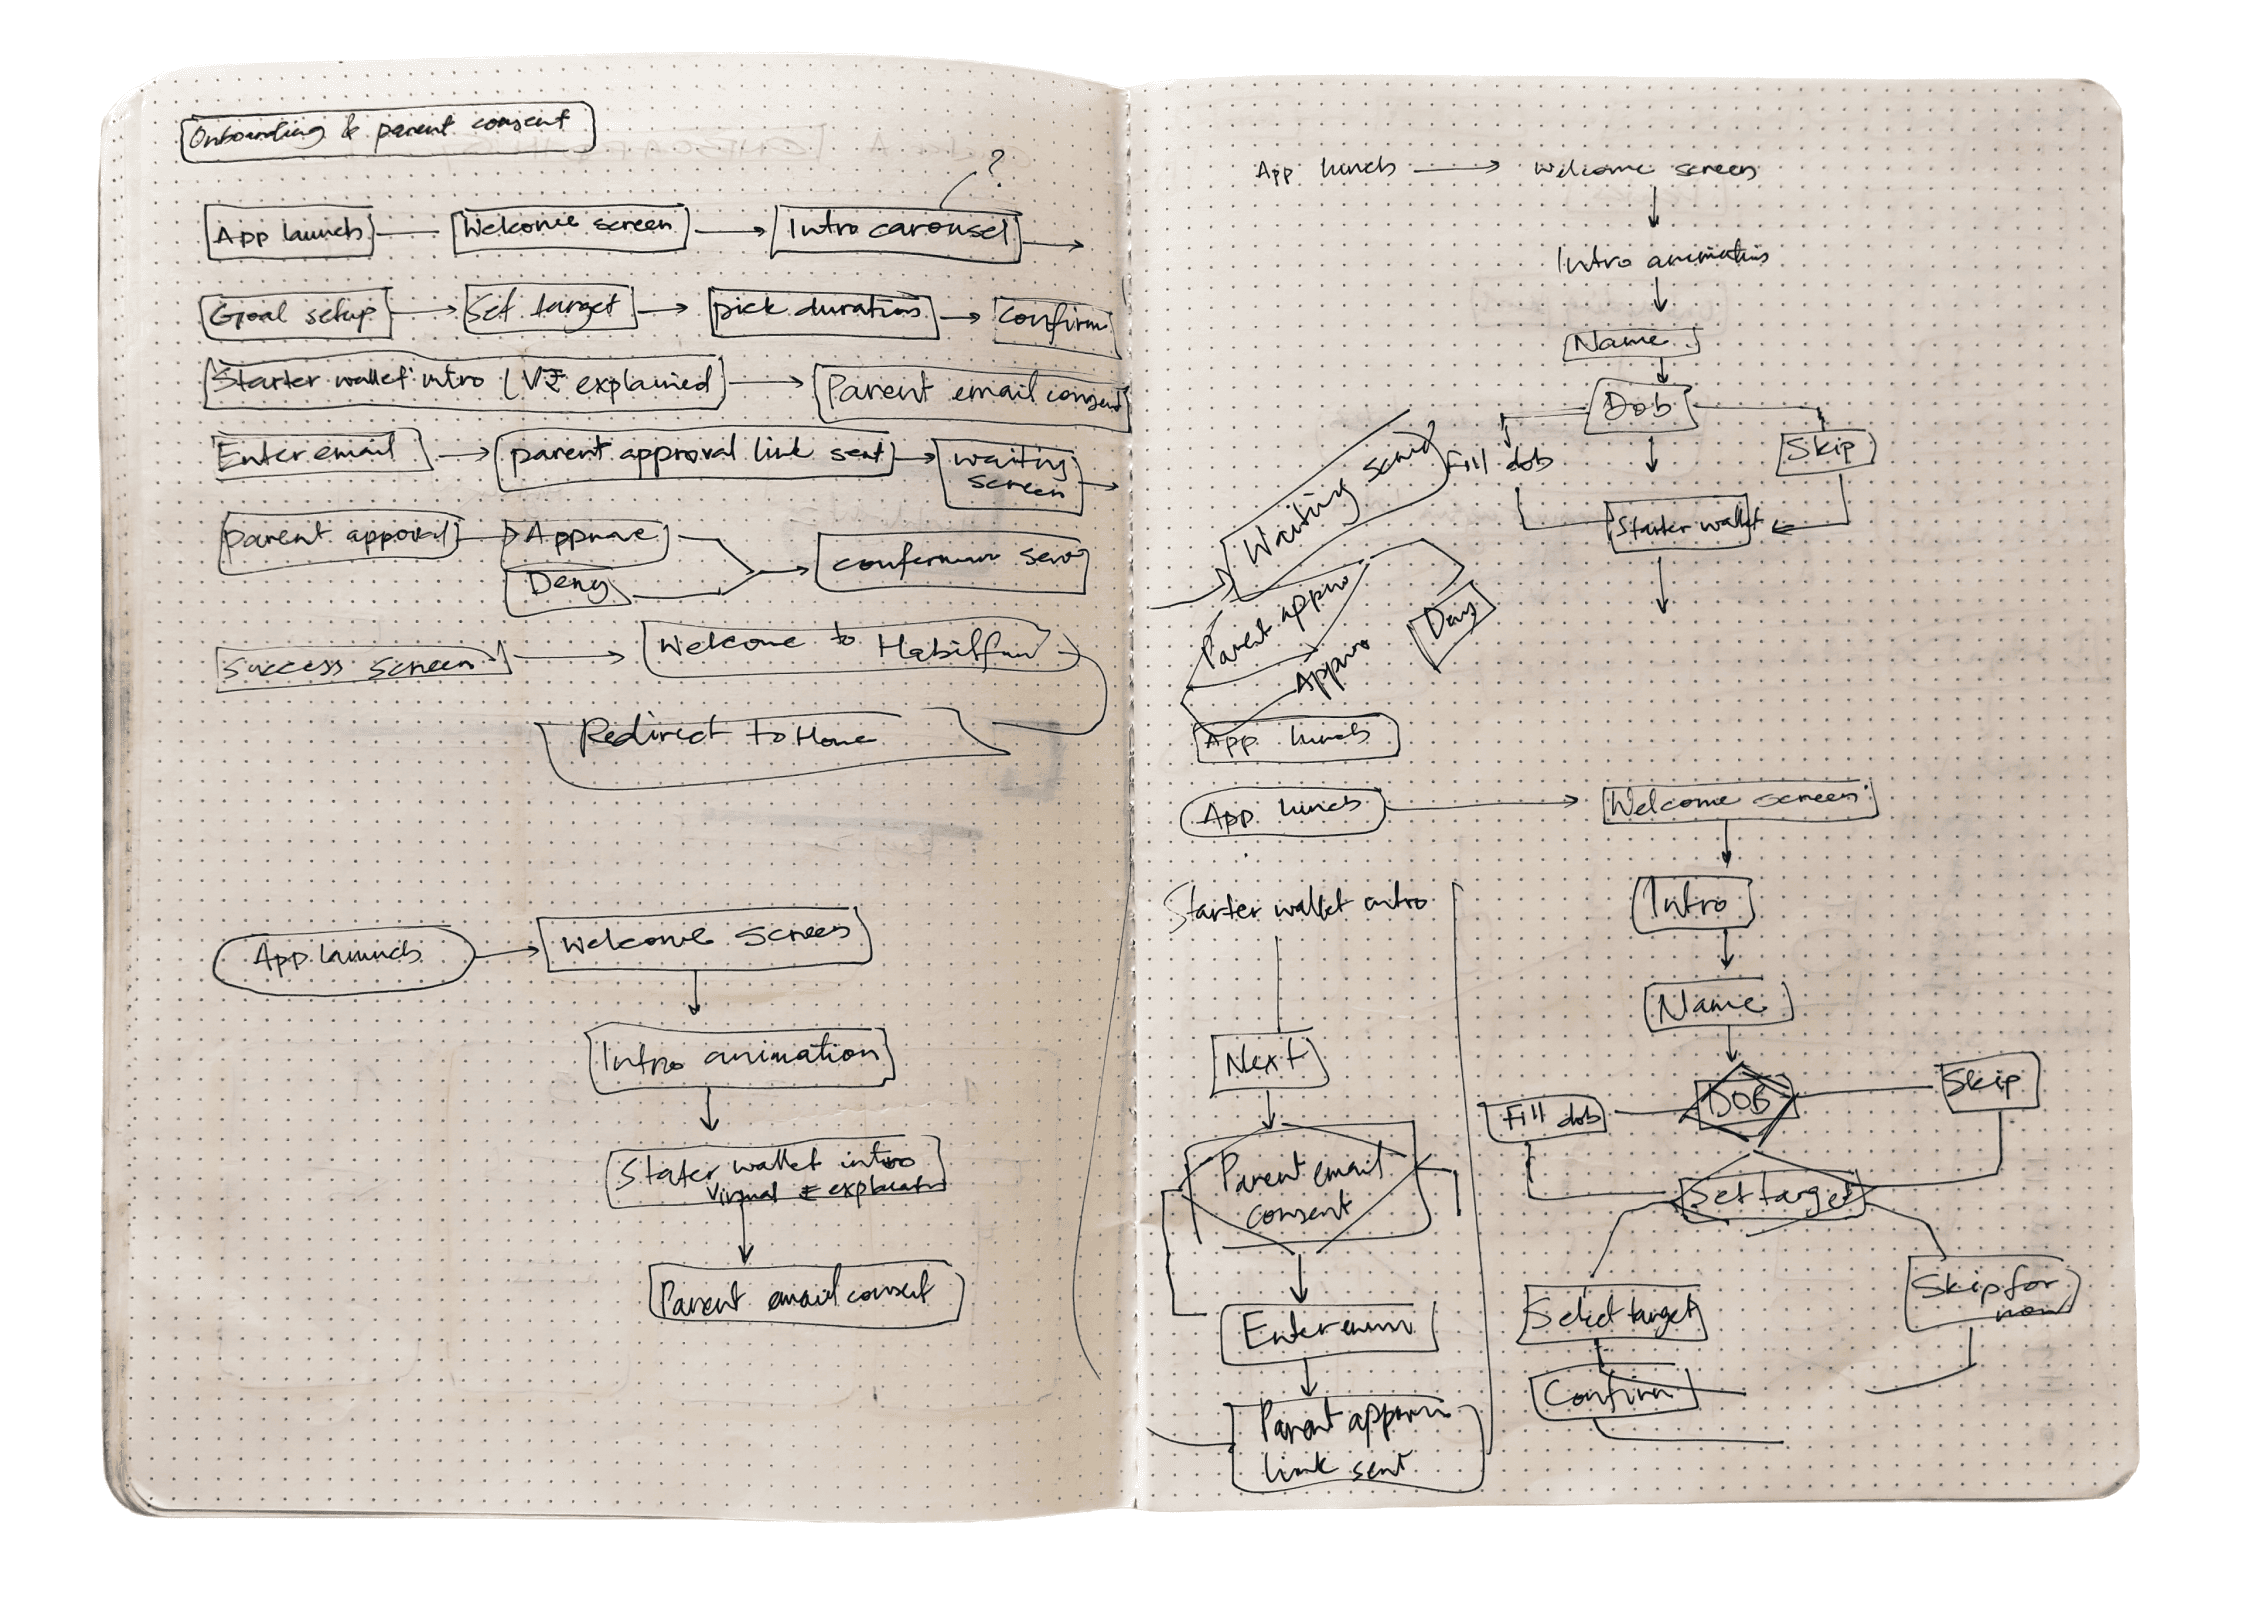 Onbounding & parent consent
?
App launch
Welcome screen
Intro carousel
Goal setup
Set target
pick duration
confirm
Starter wallet intro ( V₹ explained
Parent email consent
Enter email
parent approval link sent
waiting
screen
parent apporval
Approve
Deny
Success screen
Welcome to
Redirect to Home
App launch
Welcome screen
Intro animation
Stater wallet intro
Virtual ₹
Parent email consent
App lunch
Welcome screen
Intro animation
Name
Dob
Fill dob
Skip
Starter wallet
Waiting
Parent
Deny
App lunch
App lunch
Welcome screen
Intro
Name
DOB
Fill dob
Skip
Set target
Select target
Skip for
now
Confirm
Starter wallet intro
Next
Parent email
consent
Enter
Parent
link sent